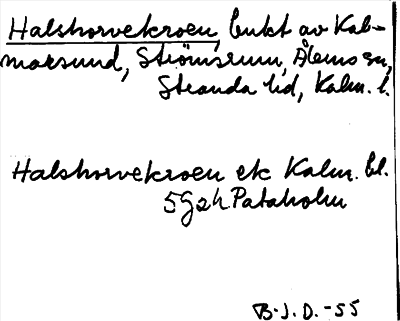 Halshorvekroen, bukt av Kal-
marsund, Strömsrum, Ålems sn,
Stranda hd, Kalm. l.
Halshorvekroen ek Kalm. bl.
5G2h Pataholm
B.J.D. -55